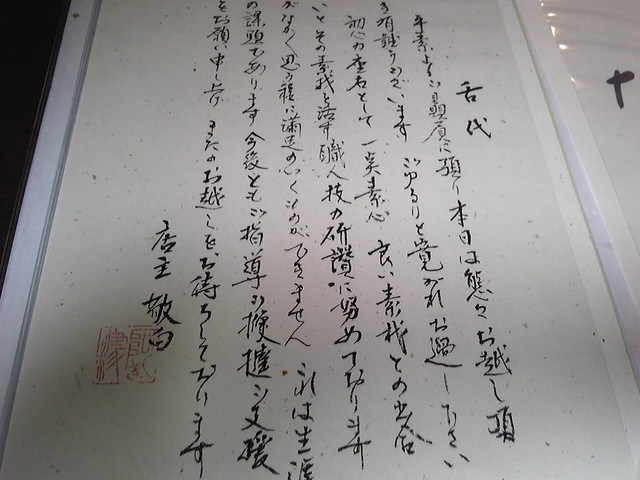 舌代
平素よりご贔屓に預り本日は態々お越し頂
き有難うございます ごゆるりと寛がれお過し下さい
初心を座右として 一笑素心 良い素材との出会
いとその素材を活す職人技の研讃に努めております
がなかなか思う様に満足の心くものができません これは生涯
の課題であります 今後ともご指導ご鞭撻ご支援
をお願い申し上げ またのお越しをお待ちしております
店主 敬白